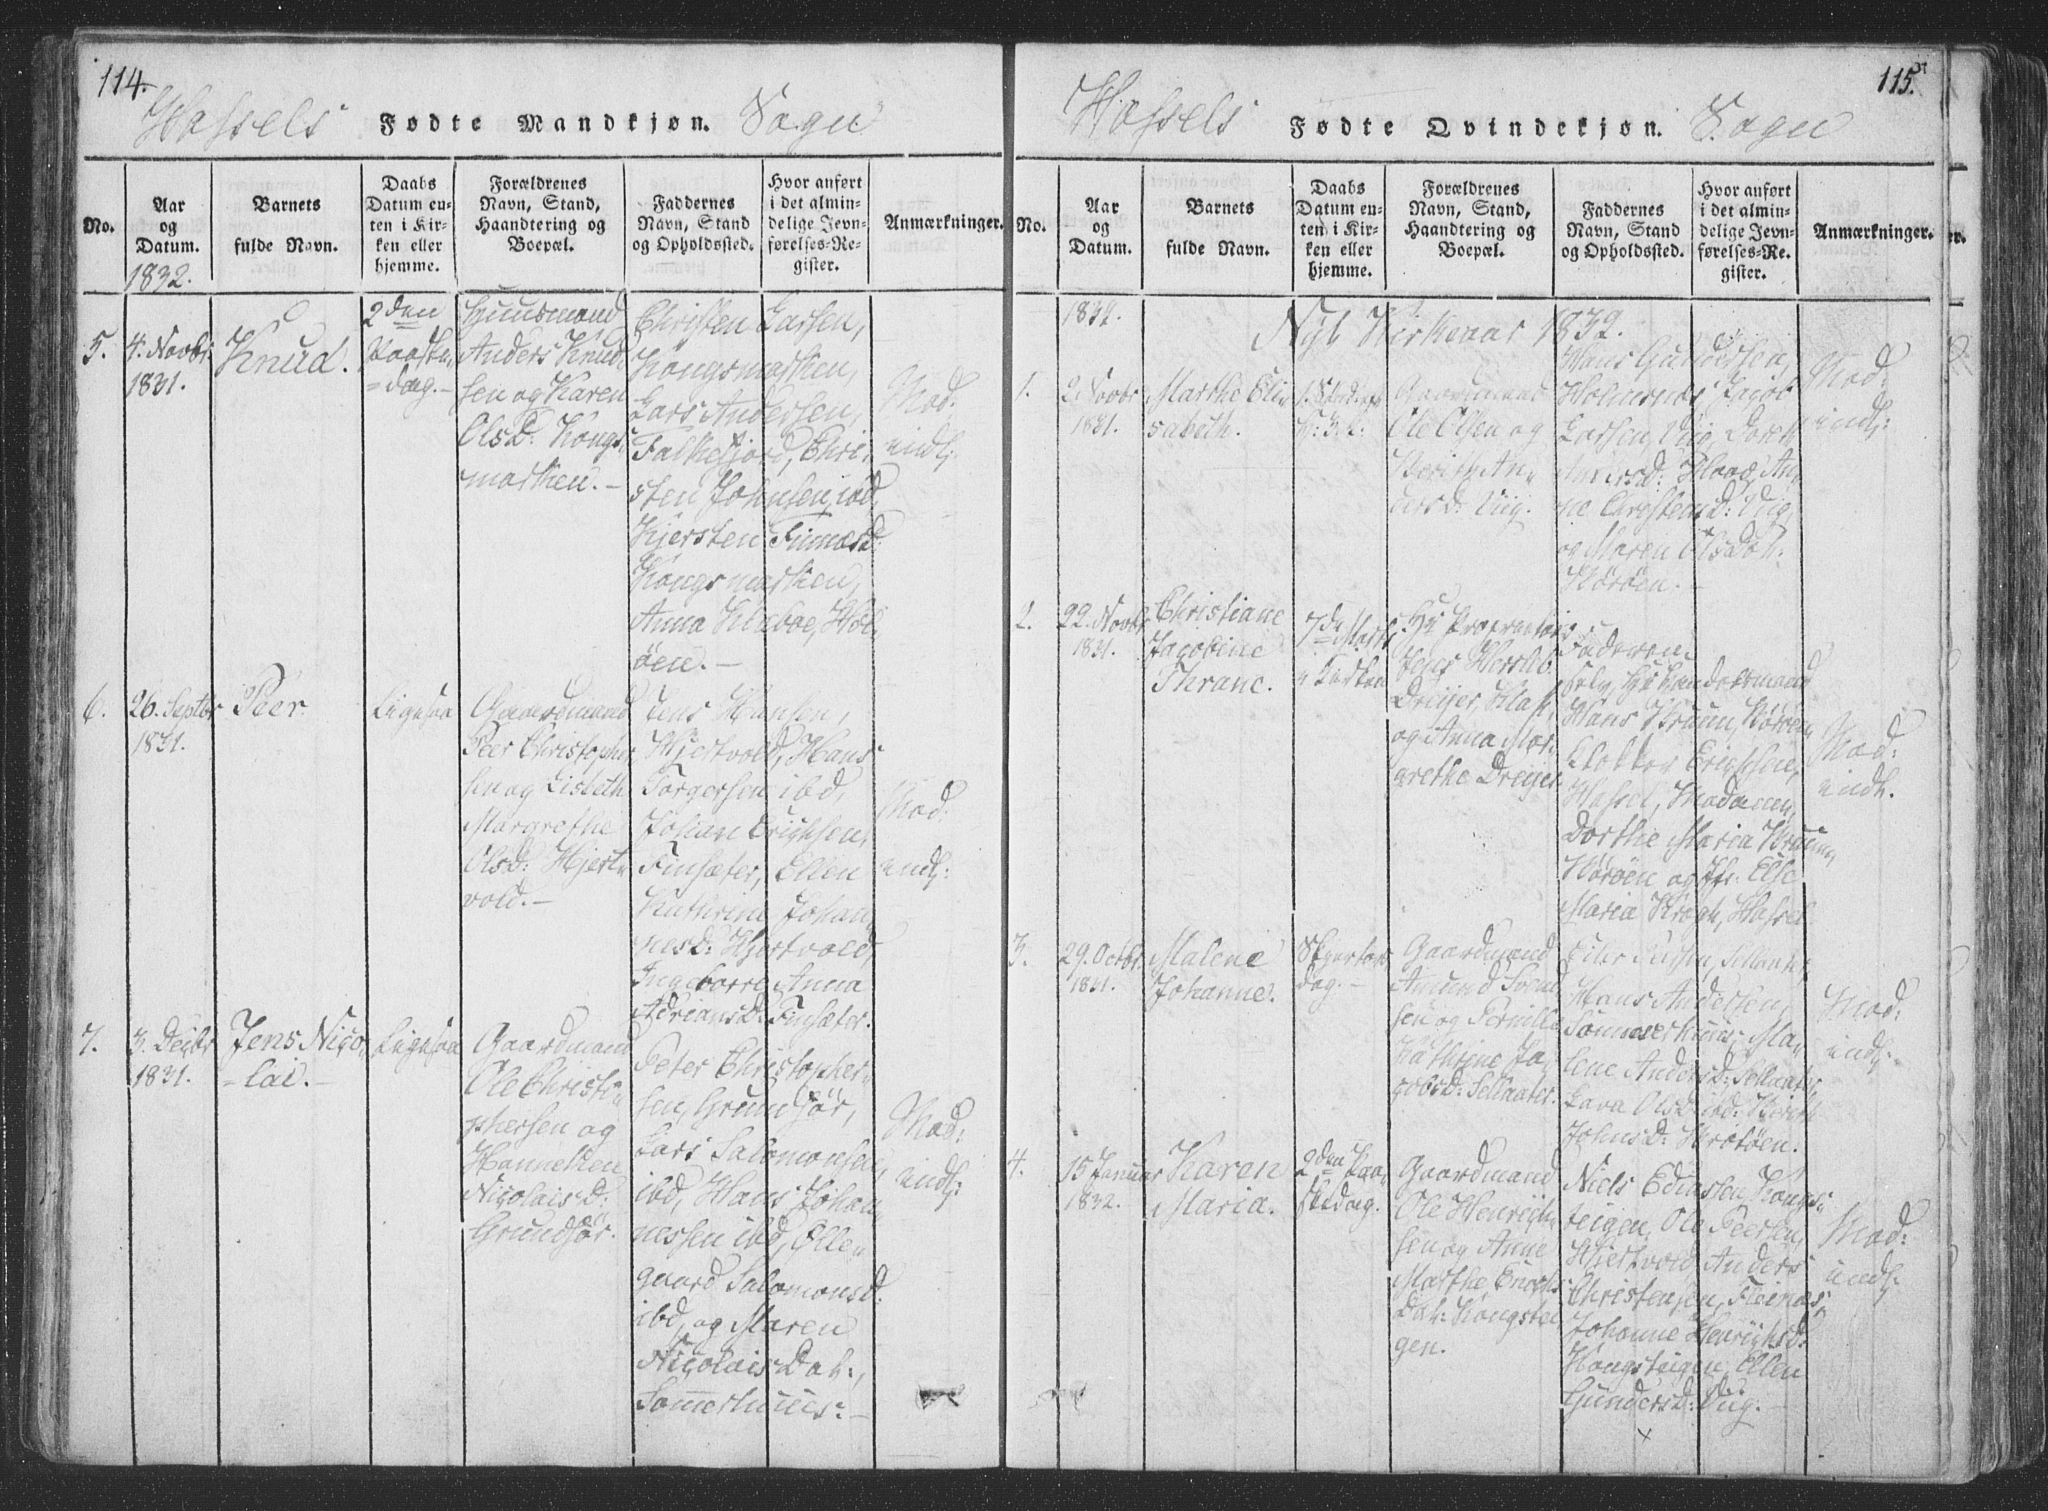 114.
Hassels Fødte Mandkjøn. Sogn
No.
Aar
og
Datum.
Barnets
fulde Navn.
Daabs
Datum en-
ten i Kir-
ken eller
hjemme.
Forældrenes
Navn, Stand,
Haandtering og
Boepæl.
Faddernes
Navn, Stand
og Opholdssted.
Hvor anført
i det almin-
delige Jevn-
førelses-Re-
gister.
Anmærkninger.
1832.
5.
4. Novbr
1831.
Knud.
2den
Paaske
=dag.-
Huusmand
Anders Knud
sen og Karen
OlsD: Kongs-
marken.-
Christen Larsen,
Kongsmarken,
Lars Andersen,
Falkefjord, Chri-
sten Johnsen ibd,
Kjersten
Kongsmarken,
Anna
øen.-
Mod:
indl:
6.
26. Septbr
1831.
Peer
Ligesaa
Gaardmand
Peer Christopher
sen og Lisbeth
Margrethe
OlsD: Hjert-
vold.-
Jens Hansen,
Hjertvold, Hans
Torgersen ibd,
Johan Erichsen,
Finsæter, Ellen
Kathrine Johan
nesD: Hjertvold,
Ingeborre Anna
AdriansD: Finsæter.
Mod:
indl:
7.
3. Decbr
1831.
Jens Nico-
-lai.-
Ligesaa
Gaardmand
Ole Christo-
phersen og
Hanneken
NicolaisD:
Grundfør.
Peter Christopher-
sen, Grundfør,
Lars Salomonsen,
ibd, Hans Johan-
nessen ibd, Elle-
gaard SalomonsD:
ibd, og Maren
Nicolais Dat:,
Somerhuus:-
Mod:
indl:
115.
Hassels Fødte Qvindekjøn. Sogn
No.
Aar
og
Datum.
Barnets
fulde Navn.
Daabs
Datum en-
ten i Kir-
ken eller
hjemme.
Forældrenes
Navn, Stand,
Haandtering og
Boepæl.
Faddernes
Navn, Stand
og Opholdssted.
Hvor anført
i det almin-
delige Jevn-
førelses-Re-
gister.
Anmærkninger.
1832.
Nyt Kirkeaar 1832.
1.
2. Novbr
1831.
Marthe Eli-
sabeth.
Gaardmand
Ole Olsen og
Berith An-
dersD: Viig.
Hans Gundersen,
Jacob
Larsen, Viig, Dorth
An-
ne ChristensD: Viig,
og Maren Ols Dat:
Børøen.-
Mod:
indl:
2.
22. Novbr
1831.
Christiane
Jacobine
Thrane.
7de Marts
i Kirken
Hr Proprietair
Jens
Dreijer,
og Anna Mar-
grethe Dreijer
Faderen
selv, Hr Handelsmand
Hans Bruun, Børøen,
Klokker Erichsen,
Hassel, Madame
Dorthe Maria Bruun,
Børøen og Jfr: Else
Maria Krogh, Hassel
Mod:
indl.
3.
29. Octbr.
1831.
Malene
Johanne.
Skjertors
dag.-
Gaardmand
Amund Svend
sen og Pernille
Kathrine Ja-
cobsD: Selnæter.
Hans Andersen,
Sommerhuus, Ma-
lene AndersD:
OlsD: ibd: Berith
JohnsD:
Mod:
indl:
4.
15 Januar
1832.
Karen
Maria.
2den Paa-
skedag.
Gaardmand
Ole Henrich-
sen og Anne
Marthe Enochs
Dat: Kongstei
gen.
Niels Kongs-
teigen, Ole Peersen,
Hjertvold Anders
Christensen, Fleines
Johanne HenrichsD:
Kongsteigen, Ellen
GundersD: Viig.-
Mod:
indl:
x